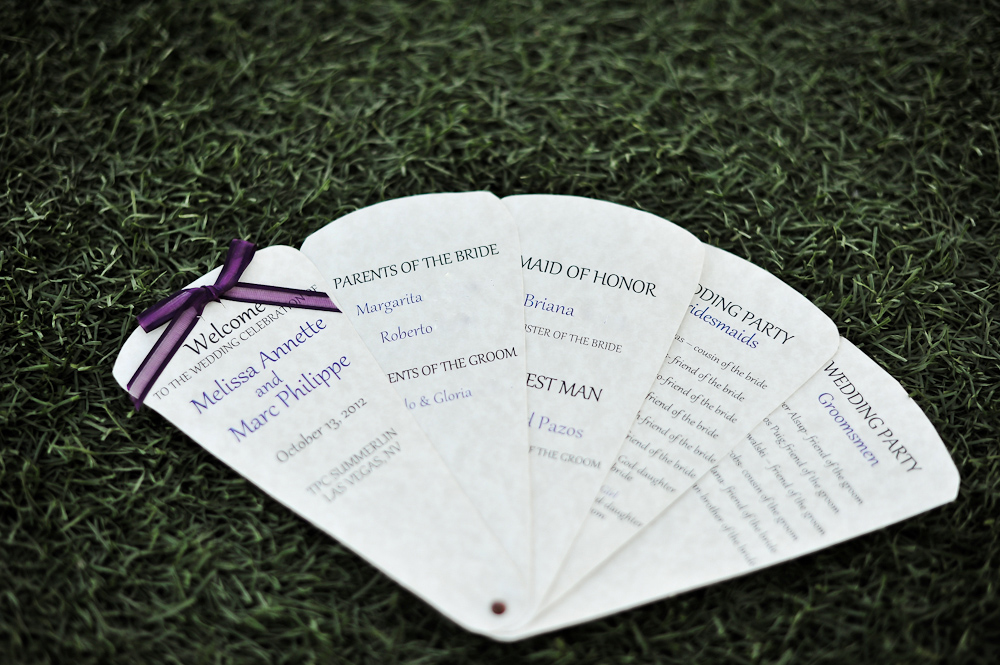 Welcome
TO THE WEDDING CELEBRATION OF
Melissa Annette
and
Marc Philippe
October 13, 2012
TPC SUMMERLIN
LAS VEGAS, NV
PARENTS OF THE BRIDE
Margarita
Roberto
ENTS OF THE GROOM
lo & Gloria
MAID OF HONOR
Briana
STER OF THE BRIDE
EST MAN
d Pazos
OF THE GROOM
DDING PARTY
ridesmaids
as – cousin of the bride
friend of the bride
friend of the bride
friend of the bride
friend of the bride
friend of the bride
God daughter
of the bride
Girl
od daughter
WEDDING PARTY
Groomsmen
er Alsup friend of the groom
as Puig friend of the groom
walski - friend of the groom
obs cousin of the groom
ana friend of the groom
n brother of the bride